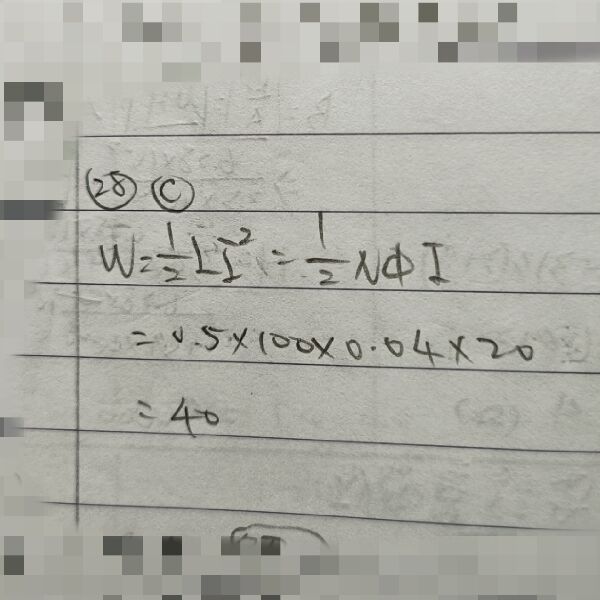 ㉘ Ⓒ
W=½LI²=½NΦI
=0.5×100×0.04×20
=40